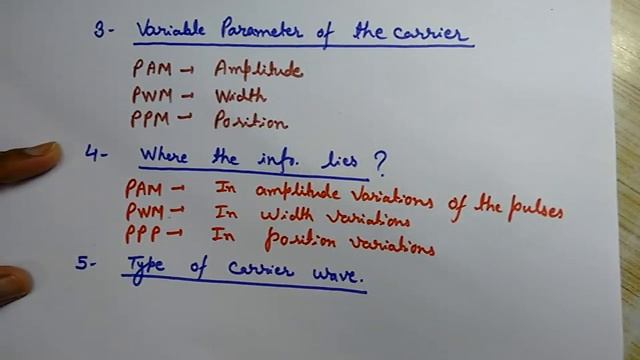 3- Variable Parameter of the carrier
PAM → Amplitude
PWM → Width
PPM → Position
4- Where the info. lies ?
PAM → In amplitude variations of the pulses
PWM → In width variations
PPP → In position variations
5- Type of carrier wave.